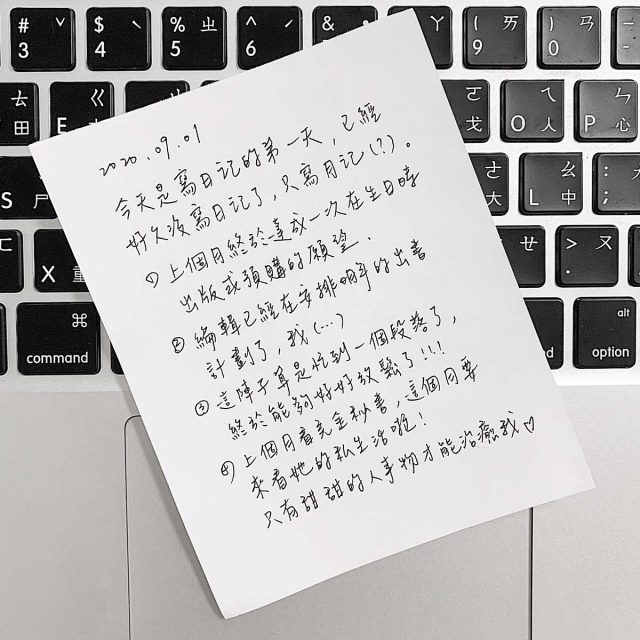 # ˇ $ ˋ % ㄓ ^ ˊ & ㄚ ( ㄛ ) ㄢ
3 4 5 6 9 0
ㄊ 田 E ㄍ ㄛ 戈 O ㄟ 人 P ㄣ 心
S ㄕ 大 L ㄠ 中 : ㄤ ;
X 重 ㄝ > ㄡ .
⌘ command alt option
2020.09.01
今天是寫日記的第一天，已經
好久沒寫日記了，只寫月記(?)。
① 上個月終於達成一次在生日時
出版或預購的願望．
② 編輯已經在安排明年的出書
計劃了，我(...)
③ 這陣子算是忙到一個段落了，
終於能夠好好放鬆了!!!
④ 上個月看完金秘書，這個月要
來看她的私生活啦！
只有甜甜的人事物才能治癒我♡